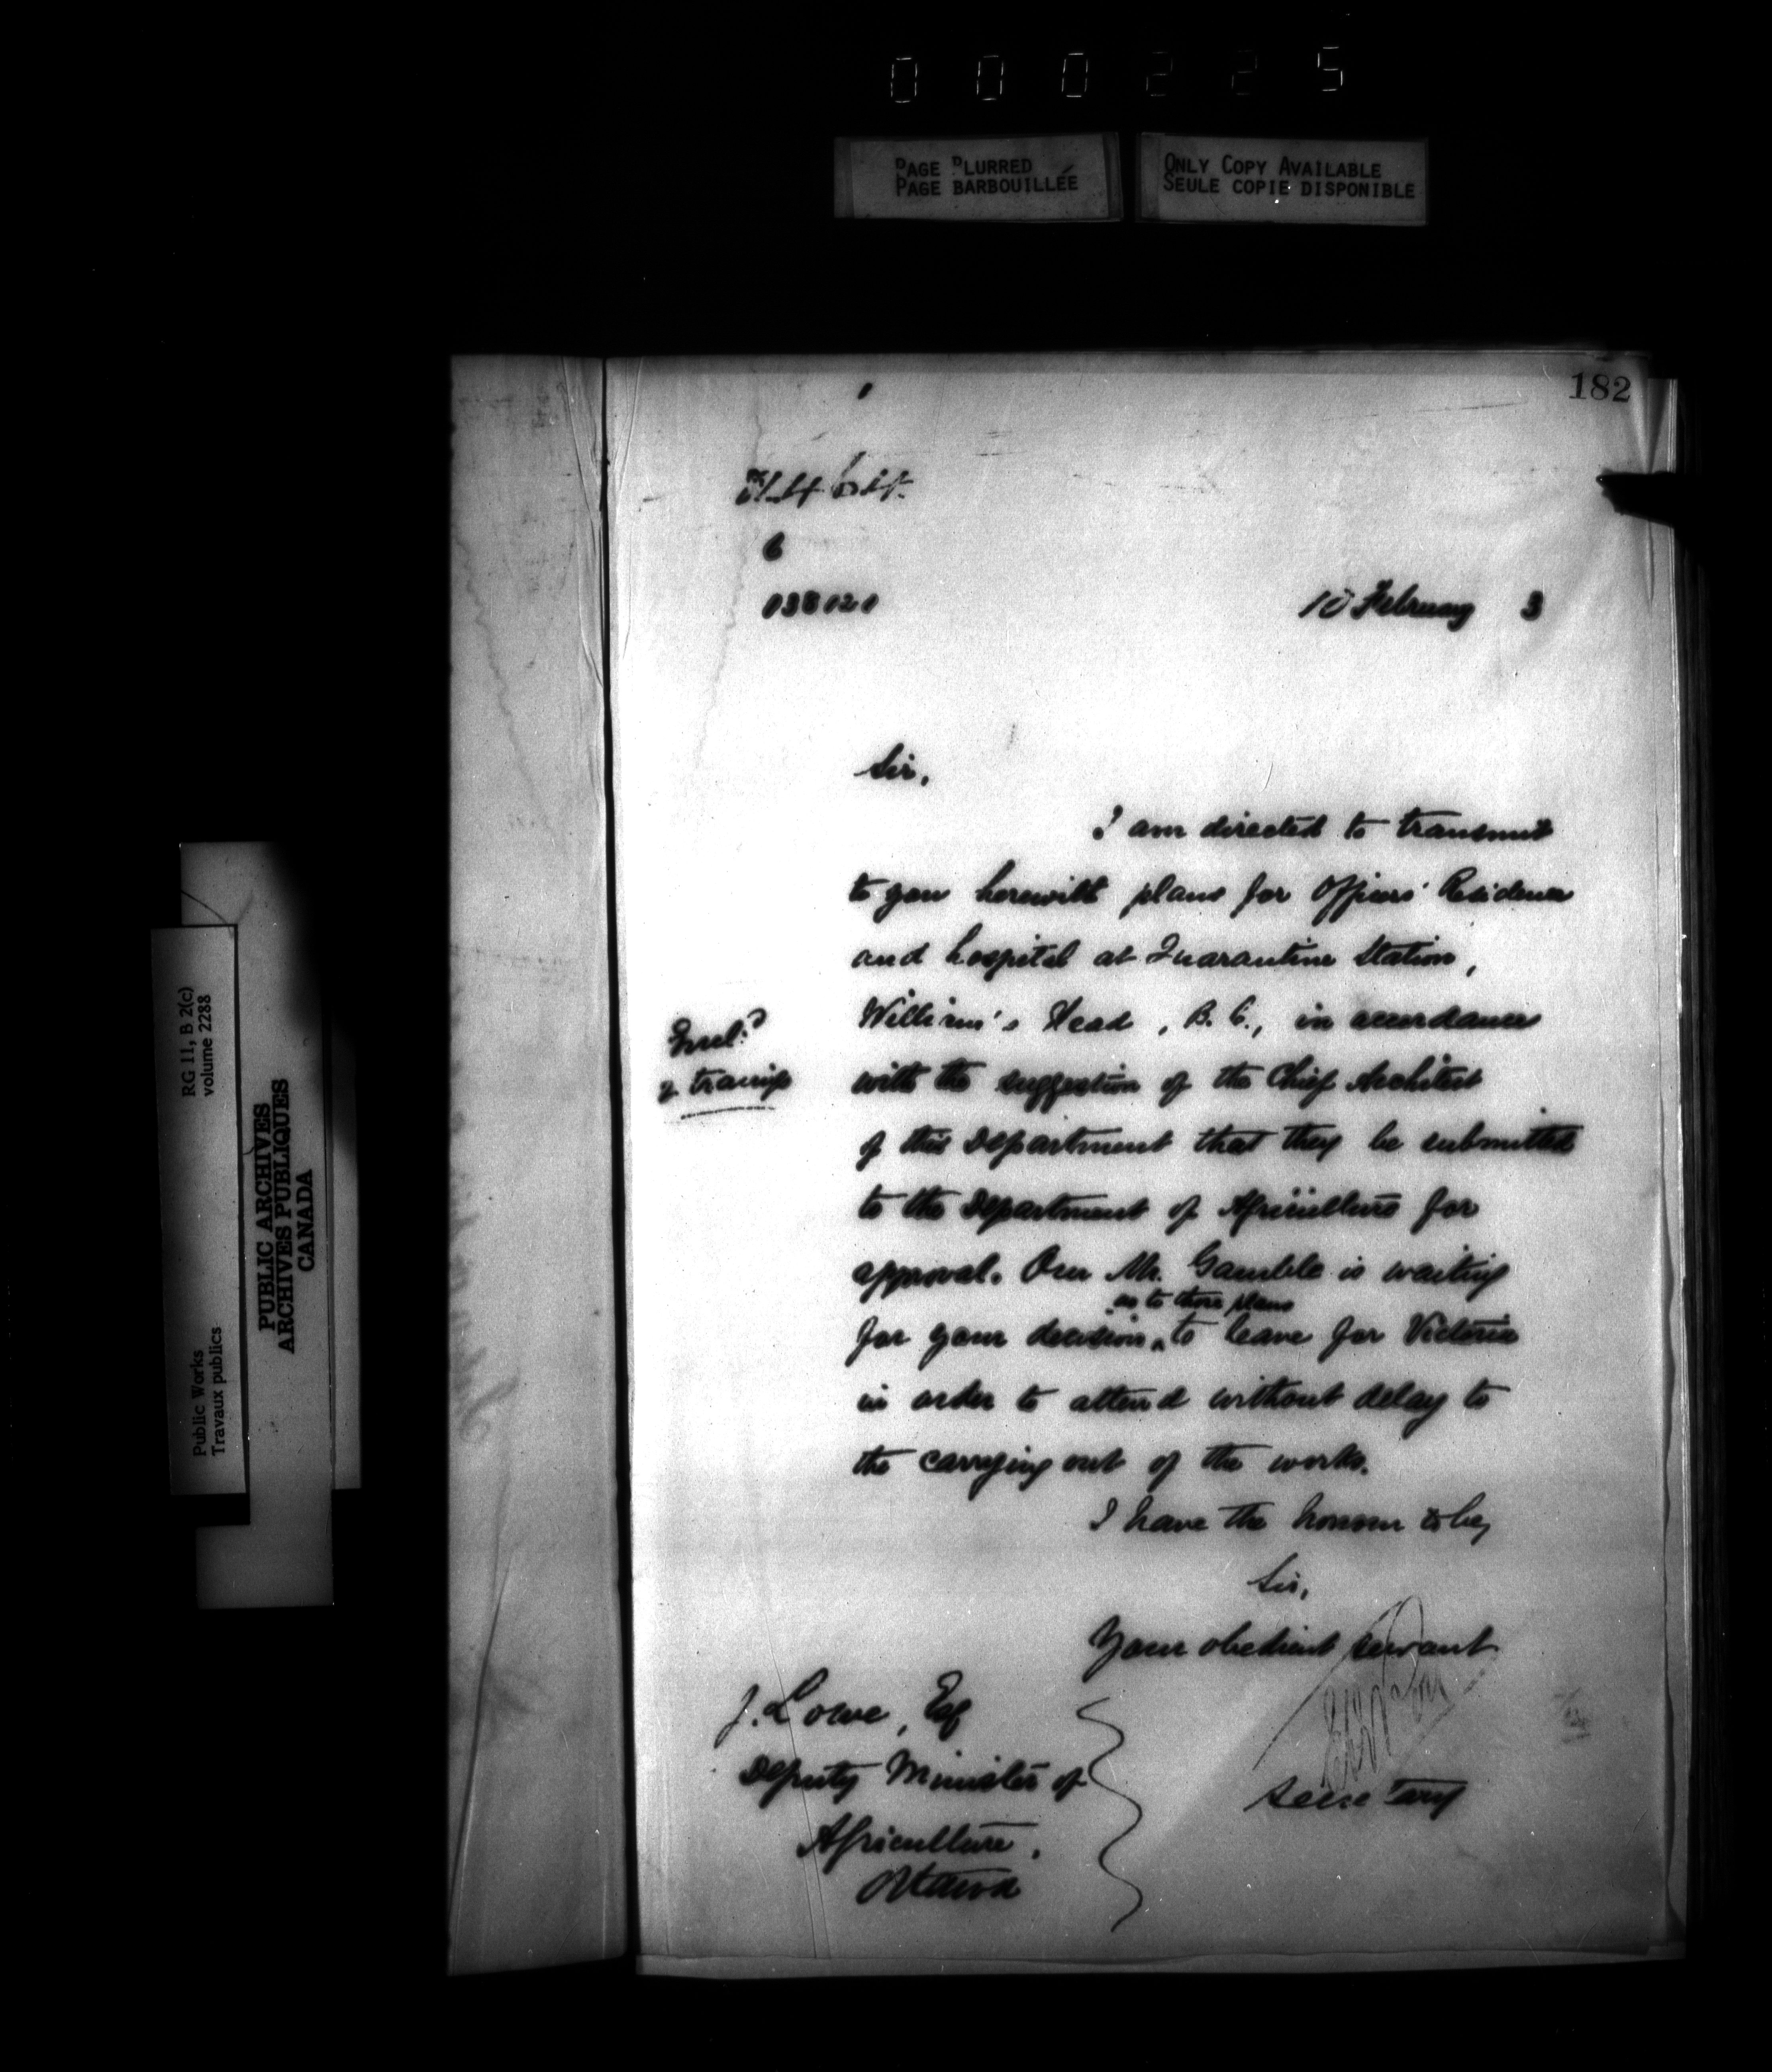 000225
PAGE BLURRED
PAGE BARBOUILLÉE
ONLY COPY AVAILABLE
SEULE COPIE DISPONIBLE
182
6
10 February 3
Sir,
I am directed to transmit
to you herewith plans for Officers' Residence
and hospital at Quarantine Station,
William's Head, B.C., in accordance
Encl?
with the suggestion of the Chief Architect
of this Department that they be submitted
to the Department of Agriculture for
approval. Our Mr. Gamble is waiting
as to those plans
for your decision, to leave for Victoria
in order to attend without delay to
the carrying out of the works.
I have the honour to be,
Sir,
Your obedient servant
Secretary
J. Lowe, Esq
Deputy Minister of
Agriculture,
Ottawa
RG 11, B 2(c)
volume 2288
Public Works
Travaux publics
PUBLIC ARCHIVES
ARCHIVES PUBLIQUES
CANADA